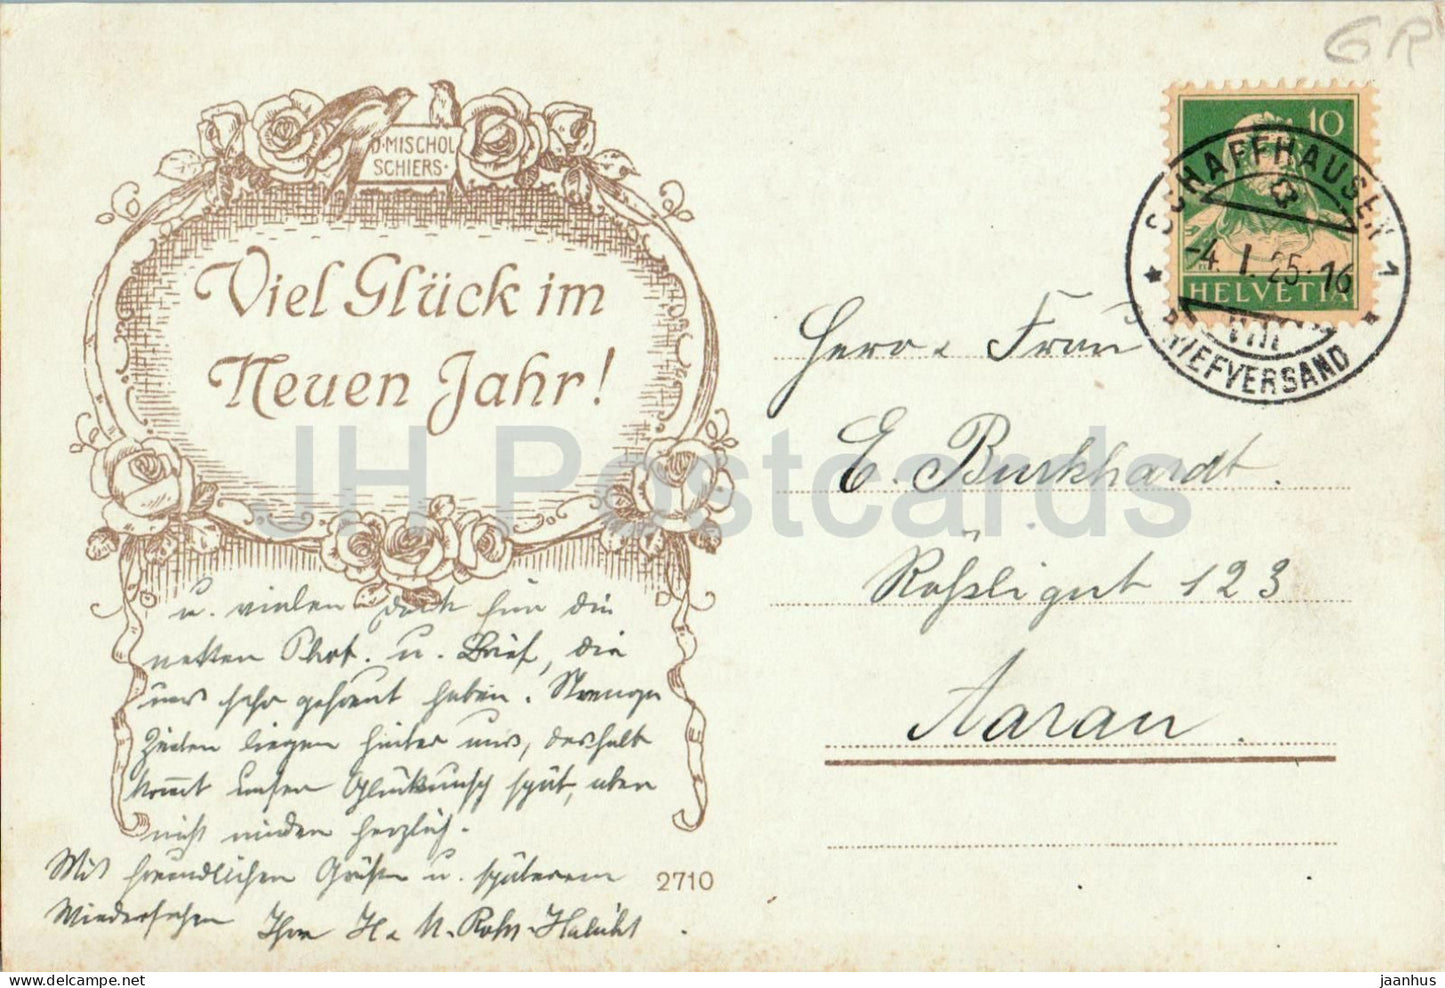 GR
D. MISCHOL
SCHIERS.
Viel Glück im
Neuen Jahr!
10
HELVETIA
SCHAFFHAUSEN 1
-4. I. 25. 16
VIII
BRIEFVERSAND
Herr u. Frau
E. Burkhardt.
Rößligut 123
Aarau.
u. vielen Dank für die
netten Phot. u. Brief, die
uns sehr gefreut haben. Strenge
Zeiten liegen hinter uns, deshalb
kommt unser Glückwunsch spät, aber
nicht minder herzlich.
Mit freundlichen Grüßen u. späterem
Wiedersehen Ihre H. u. M.
2710
JH Postcards
jaanhus